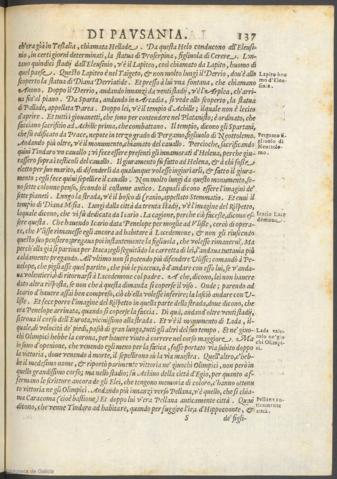 DI PAVSANIA. 137
ch'era già in Tessalia, chiamata Hellade. Da questa Helo conducono all'Eleusi-
nio, in certi giorni determinati, la statua di Proserpina, figliuola di Cerere. Lon-
tano quindici stadij dall'Eleusinio, v'è il Lapiteo, così chiamato da Lapito, huomo di
quel paese. Questo Lapiteo è nel Taigeto, & non molto lungi il Derrio, dou'è allo
scoperto la statua di Diana Derriatide. Et presso à lui una fontana, che chiamano
Anono. Doppo il Derrio, andando innanzi da venti stadij, v'è
sin' al piano. Da Sparta, andando in Arcadia, si vede allo scoperto, la statua
di Pallade, appellata Parea. Doppo lei, v'è il tempio d'Achille; il quale non è lecito
d'aprire. Et tutti i giouanetti, che sono per contendere nel Platanisto; è ordinato, che
facciano sacrificio ad Achille prima, che combattano. Il tempio, dicono gli Spartani,
che fù edificato da Prace, nepote in terzo grado di Pergamo, figliuolo di Neottolemo.
Andando più oltre, v'è il monumento, chiamato del cauallo. Percioche, sacrificando
quiui Tindaro un cauallo; fece essere presenti gl'innamorati d'Helena, perche giu-
rassero sopra i testicoli del cauallo. Il giuramento fù fatto ad Helena, & à chi fusse
eletto per suo marito, di difenderli da qualunque volesse ingiuriarli, & fatto il giura-
mento; egli fece quiui sepellire il cauallo. Non molto lungi da questo monumento, so-
no sette colonne penso, secondo il costume antico. Lequali dicono essere l'imagini de'
sette pianeti. Lungo la strada, v'è il bosco di Carnio, appellato Stemmatio. Et euui il
tempio di Diana Misia. Lungi dalla città da trenta stadij, v'è l'imagine del Rispetto,
laquale dicono, che vi fù dedicata da Icario. La cagione, perche ciò facesse, dicono es-
ser questa. Che hauendo Icario data Penelope per moglie ad Vlisse, cercò di opera-
re, che Vlisse rimanesse egli ancora ad habitare à Lacedemone, & non gli riuscendo
questo suo pensiero; pregaua poi instantemente la figliuola, che volesse rimanerui. Ma
perch'ella già si partiua per Itaca; egli seguitãdo la carretta di lei, l'andaua tuttauia più
caldamente pregando. All'ultimo non si potendo più difendere Vlisse; comandò à Pe-
nelope, che pigliasse quel partito, che più le piaceua, ò d'andare con esso lui, se v'anda-
ua volentieri; ò di ritornarsi à Lacedemone col padre. A che, dicono, lei non hauere
dato altra risposta, se non che à questa domanda si coperse il viso. Onde; parendo ad
Icario d'hauere assai ben compreso, ciò ch'ella volesse inferire; la lasciò andare con V-
lisse. Et fece porre l'imagine del Rispetto in quella parte della strada, doue dicono, che
era Penelope arriuata, quando si coperse la faccia. Di quà, andand' oltre venti stadij,
si troua il corso dell'Eurota, vicinissimo alla strada. Et v'è il monumento di Lada, il-
quale, di velocità de' piedi, passò di gran lunga, tutti gli altri del suo tempo. Et ne' giuo-
chi Olimpici hebbe la corona, per hauere vinto à correre nel corso maggiore. Ma
io sono d'openione, che venendo egli meno per la fatica, fusse portato via subito doppo
la vittoria, doue venendo à morte, si sepellirono ini la via maestra. Quell'altro, c'heb-
be il medesimo nome, & riportò parimente vittoria ne' giuochi Olimpici, non però in
quello grandissimo corso; ma nello stadio; fù Achino della città d'Egio, per quanto af-
fermano le scritture ancora de gli Elei, che tengono memoria di coloro, c'hanno ottenu-
to vittoria ne gli Olimpici. Andando più innanzi verso Pellana, v'è quello, che si chia-
ma Caracoma (cioè bastione,) Et doppo lui v'era Pellana anticamente città. Quiui
dicono, che venne Tindaro ad habitare, quando per fuggire l'ira d'Hippocoonte, &
S de' figli-
Lapito huo
mo d'Eleu-
sinia.
Pergamo fi
gliuolo di
Neottole-
mo.
Icario Lace
demone.
Lada velo-
cissimo ne'giuo
chi Olimpi-
ci.
Pellana an-
ticamente
città.